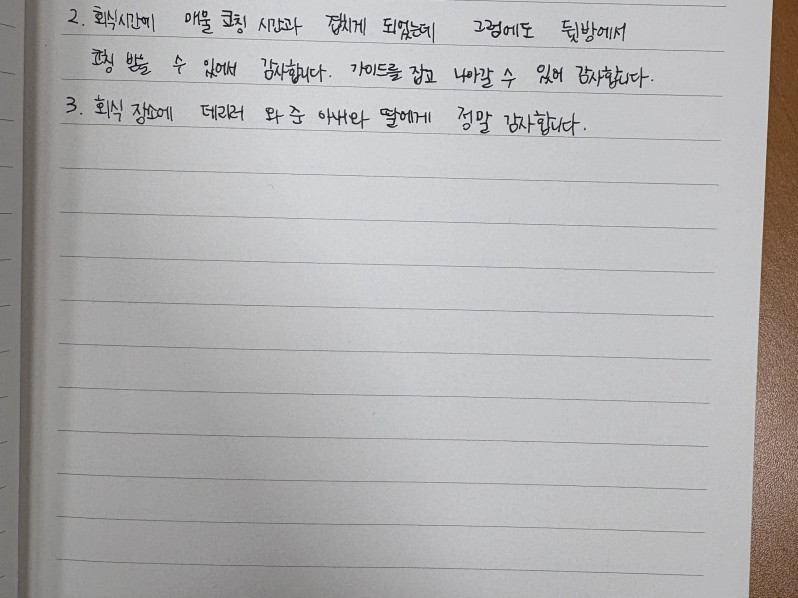 2. 회식시간에 매물 코칭 시간과 겹치게 되었는데 그럼에도 뒷방에서
코칭 받을 수 있어서 감사합니다. 가이드를 잡고 나아갈 수 있어 감사합니다.
3. 회식 장소에 데리러 와 준 아내와 딸에게 정말 감사합니다.